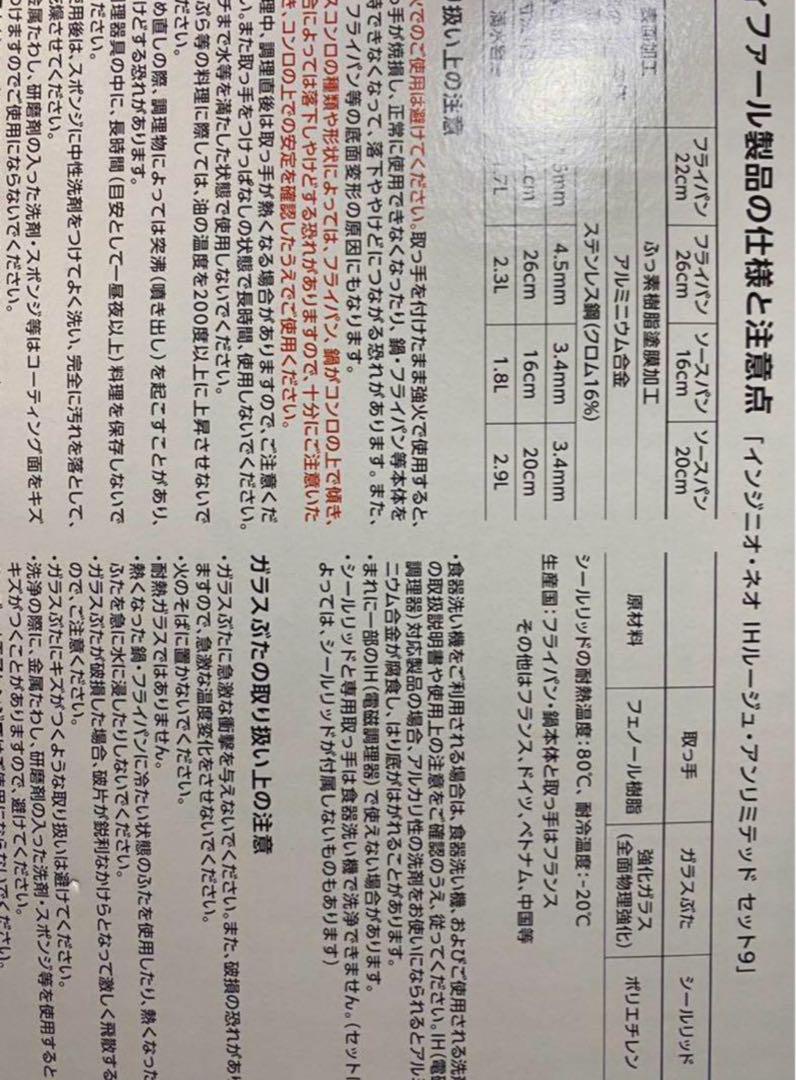 ィファール製品の仕様と注意点「インジニオ・ネオ IHルージュ・アンリミテッド セット9」
フライパン 22cm フライパン 26cm ソースパン 16cm ソースパン 20cm
表面加工 ふっ素樹脂塗膜加工
アルミニウム合金
ステンレス鋼(クロム16%)
5mm 4.5mm 3.4mm 3.4mm
cm 26cm 16cm 20cm
満水容量 .7L 2.3L 1.8L 2.9L
り扱い上の注意
火でのご使用は避けてください。取っ手を付けたまま強火で使用すると、
っ手が焼損し、正常に使用できなくなったり、鍋・フライパン等本体を
持できなくなって、落下ややけどにつながる恐れがあります。また、
フライパン等の底面変形の原因にもなります。
スコンロの種類や形状によっては、フライパン、鍋がコンロの上で傾き、
合によっては落下しやけどする恐れがありますので、十分にご注意いた
き、コンロの上での安定を確認したうえでご使用ください。
理中、調理直後は取っ手が熱くなる場合がありますので、ご注意くだ
い。また取っ手をつけっぱなしの状態で長時間、使用しないでください。
チまで水等を満たした状態で使用しないでください。
ぷら等の料理に際しては、油の温度を200度以上に上昇させないで
ださい。
め直しの際、調理物によっては突沸(噴き出し)を起こすことがあり、
けどする恐れがあります。
理器具の中に、長時間(目安として一昼夜以上)料理を保存しないで
ださい。
使用後は、スポンジに中性洗剤をつけてよく洗い、完全に汚れを落として、
乾燥させてください。
金属たわし、研磨剤の入った洗剤・スポンジ等はコーティング面をキズ
つけますのでご使用にならないでください。
原材料 取っ手 ガラスぶた シールリッド
フェノール樹脂 強化ガラス (全面物理強化) ポリエチレン
シールリッドの耐熱温度:80℃、耐冷温度:-20℃
生産国:フライパン・鍋本体と取っ手はフランス
その他はフランス、ドイツ、ベトナム、中国等
・食器洗い機をご利用される場合は、食器洗い機、およびご使用される洗剤
の取扱説明書や使用上の注意をご確認のうえ、従ってください。IH(電磁
調理器)対応製品の場合、アルカリ性の洗剤をお使いになられるとアルミ
ニウム合金が腐食し、はり底がはがれることがあります。
・まれに一部のIH(電磁調理器)で使えない場合があります。
・シールリッドと専用取っ手は食器洗い機で洗浄できません。(セットに
よっては、シールリッドが付属しないものもあります)
ガラスぶたの取り扱い上の注意
・ガラスぶたに急激な衝撃を与えないでください。また、破損の恐れがあり
ますので、急激な温度変化をさせないでください。
・火のそばに置かないでください。
・耐熱ガラスではありません。
・熱くなった鍋・フライパンに冷たい状態のふたを使用したり、熱くなった
ふたを急に水に浸したりしないでください。
・ガラスぶたが破損した場合、破片が鋭利なかけらとなって激しく飛散する
ので、ご注意ください。
・ガラスぶたにキズがつくような取り扱いは避けてください。
・洗浄の際に、金属たわし、研磨剤の入った洗剤・スポンジ等を使用すると
キズがつくことがありますので、避けてください。